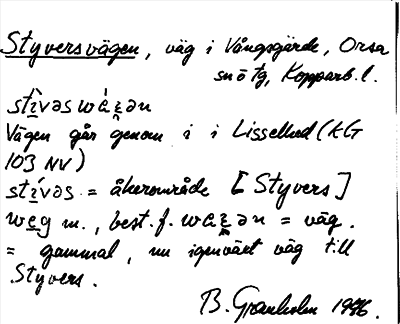 Styversvägen, väg i Vångsgärde, Orsa
sn o tg, Kopparb. l.
stìvəs wàɛ̨ən
Vägen går genom i i Lisselhed (KG
103 NV)
stívəs = åkerområde [Styvers]
weg m., best. f. waɛ̨ən = väg.
= gammal, nu igenväxt väg till
Styvers.
B. Granholm 1986.